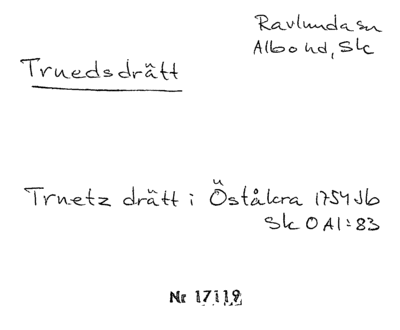 Ravlunda sn
Albo hd, Sk
Truedsdrätt
Truetz drätt i Öståkra 1754 Jb
Sk O Al:83
Nr 17119